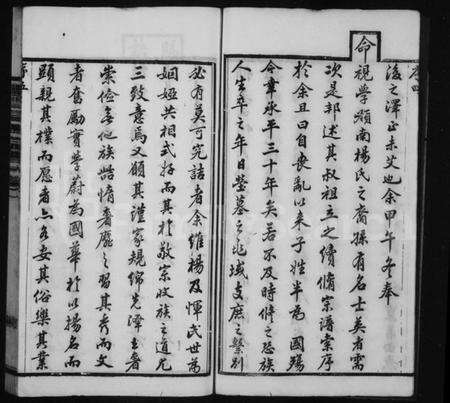 序四
後之澤正未艾也余甲午冬奉
命視學嶺南楊氏之裔孫有名士英者需
次是邦述其叔祖立之續脩宗譜索序
於余且曰自喪亂以來子姓半為國殤
今幸承平三十年矣若不及時脩之恐族
人生卒之年日塋墓之地域支庶之繫別
必有莫可究詰者余維楊及惲氏世為
姻婭共相式好而其於敬宗收族之道尤
三致意焉又願其謹家規綿先澤士者
崇儉無他族諧惰奢靡之習其秀而文
者奮勵實學蔚為國華於以揚名而
顯親其樸而愿者亦各安其俗樂其業
序五